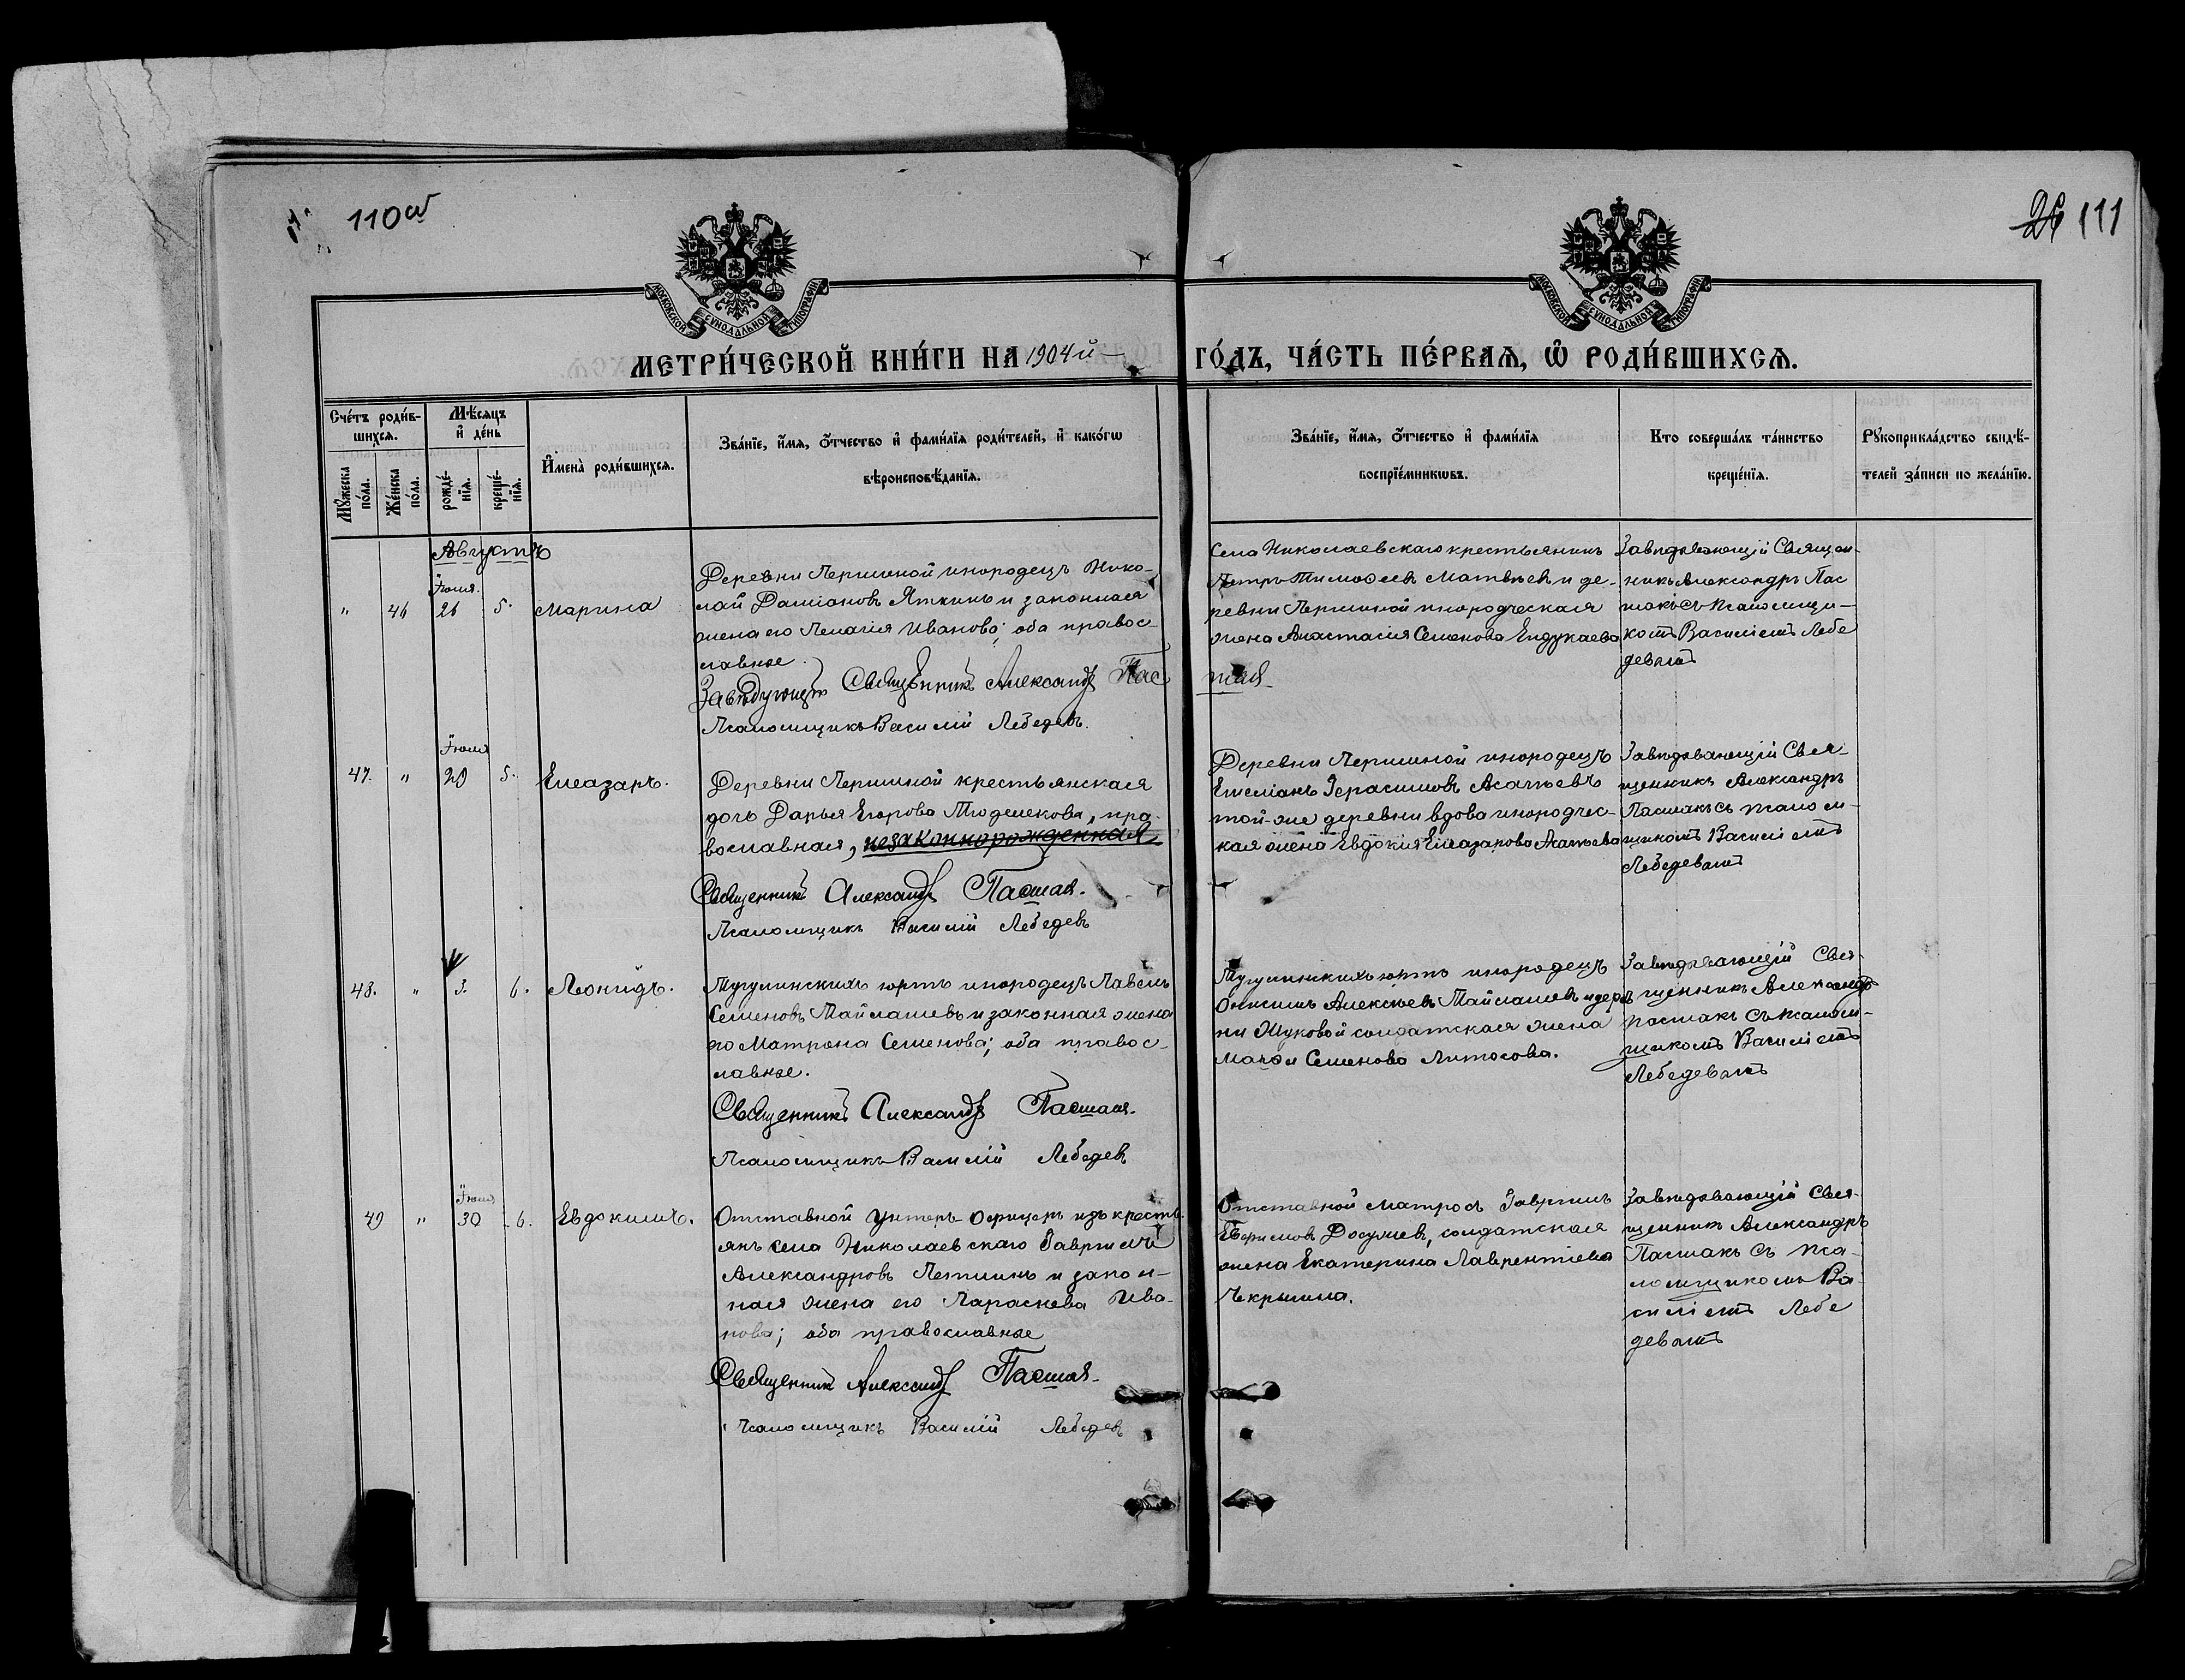 110об
26 111
МОСКОВСКОЙ СУНОДАЛЬНОЙ ТИПОГРАФІИ
МОСКОВСКОЙ СУНОДАЛЬНОЙ ТИПОГРАФІИ
МЕТРИ́ЧЕСКОЙ КНИ́ГИ НА 1904й ГО́ДЪ, ЧА́СТЬ ПЕ́РВАѦ, Ѡ҆ РОДИ́ВШИХСѦ.
Сче́тъ роди́в-
шихсѧ.
Мѣ́сѧцъ
и҆ де́нь
Мꙋ́жеска
по́ла.
Же́нска
по́ла.
рожде́-
нїѧ.
креще́-
нїѧ.
И҆мена̀ роди́вшихсѧ.
Зва́нїе, и҆́мѧ, ѻ҆́тчество и҆ фами́лїѧ роди́телей, и҆ како́гѡ
вѣроисповѣ́данїѧ.
Зва́нїе, и҆́мѧ, ѻ҆́тчество и҆ фами́лїѧ
воспрїе́мникѡвъ.
Кто соверша́лъ та́инство
креще́нїѧ.
Рꙋкоприкла́дство свидѣ́-
телей за́писи по жела́нїю.
Августъ
Іюля
" 46 26 5. Марина
Деревни Першиной инородецъ Нико-
лай Даміановъ Яткинъ и законная
жена его Пелагія Иванова; оба правос-
лавные.
Завѣдующій Священникъ Александръ Пасмак
Псаломщикъ Василій Лебедевъ.
Села Николаевскаго крестьянинъ
Петръ Тимоѳеевъ Матвѣевъ и де-
ревни Першиной инородческая
жена Анастасія Семенова Ендукаева
Завѣдывающій Священ-
никъ Александръ Пас
макъ съ псаломщи-
комъ Василіемъ Лебе
девымъ
Іюля
47. " 29 5. Елеазаръ.
Деревни Першиной крестьянская
дочь Дарья Егорова Тюделекова, пра-
вославная, незаконнорожденная
Священникъ Александръ Пасмак.
Псаломщикъ Василій Лебедевъ
Деревни Першиной инородецъ
Емеліанъ Герасимовъ Асатьевъ
той-же деревни вдова инородчес-
кая жена Евдокія Елеазарова Асатьева
Завѣдывающій Свя-
щенникъ Александръ
Пасмакъ съ псалом-
щикомъ Василіемъ
Лебедевымъ
48. " 3. 6. Леонидъ.
юртъ инородецъ Павелъ
Семеновъ Таймашевъ и законная жена
его Матрона Семенова; оба правос-
лавные.
Священникъ Александръ Пасмак.
Псаломщикъ Василій Лебедевъ
юртъ инородецъ
Онисимъ Алексѣевъ Таймашевъ и дерев
ни Жуковой солдатская жена
Семенова Литосова.
Завѣдывающій Свя-
щенникъ Александръ
Пасмакъ съ псалом-
щикомъ Василіемъ
Лебедевымъ
Іюля
49 " 30 6. Евдокимъ.
Отставной унтеръ-офицеръ изъ кресть-
янъ села Николаевскаго Гавріилъ
Александровъ Летинъ и закон-
ная жена его Параскева Ива-
нова; оба православные
Священникъ Александръ Пасмак.
Псаломщикъ Василій Лебедевъ
Отставной матросъ Гавріилъ
Ефимовъ Досужевъ, солдатская
жена Екатерина Лаврентіева
Чекрыгина.
Завѣдывающій Свя-
щенникъ Александръ
Пасмакъ съ пса-
ломщикомъ Ва-
силіемъ Лебе
девымъ